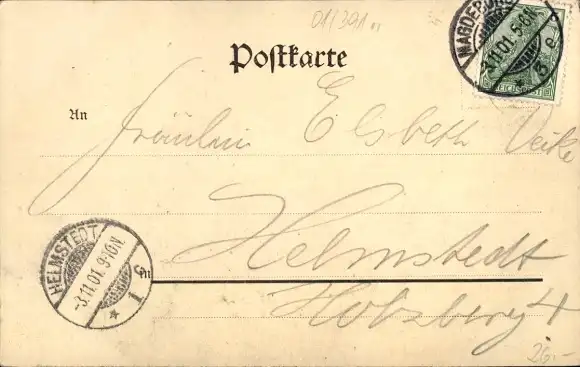 011391
MAGDEBURG
3.11.01.5-6N.
* 3 e
REICHSPOST
Postkarte
An
Fräulein Elsbeth
Helmstedt
in
Holzberg 4
HELMSTEDT
-3.11.01.9-10N.
* 1 c
20.-